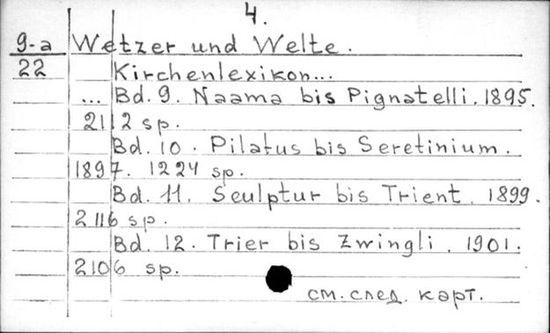 4.
9-a Wetzer und Welte.
22 Kirchenlexikon...
... Bd. 9. Naama bis Pignatelli. 1895.
2112 sp.
Bd. 10. Pilatus bis Seretinium.
1897. 1224 sp.
Bd. 11. Seulptur bis Trient. 1899.
2116 sp.
Bd. 12. Trier bis Zwingli. 1901.
2106 sp.
см. след. карт.